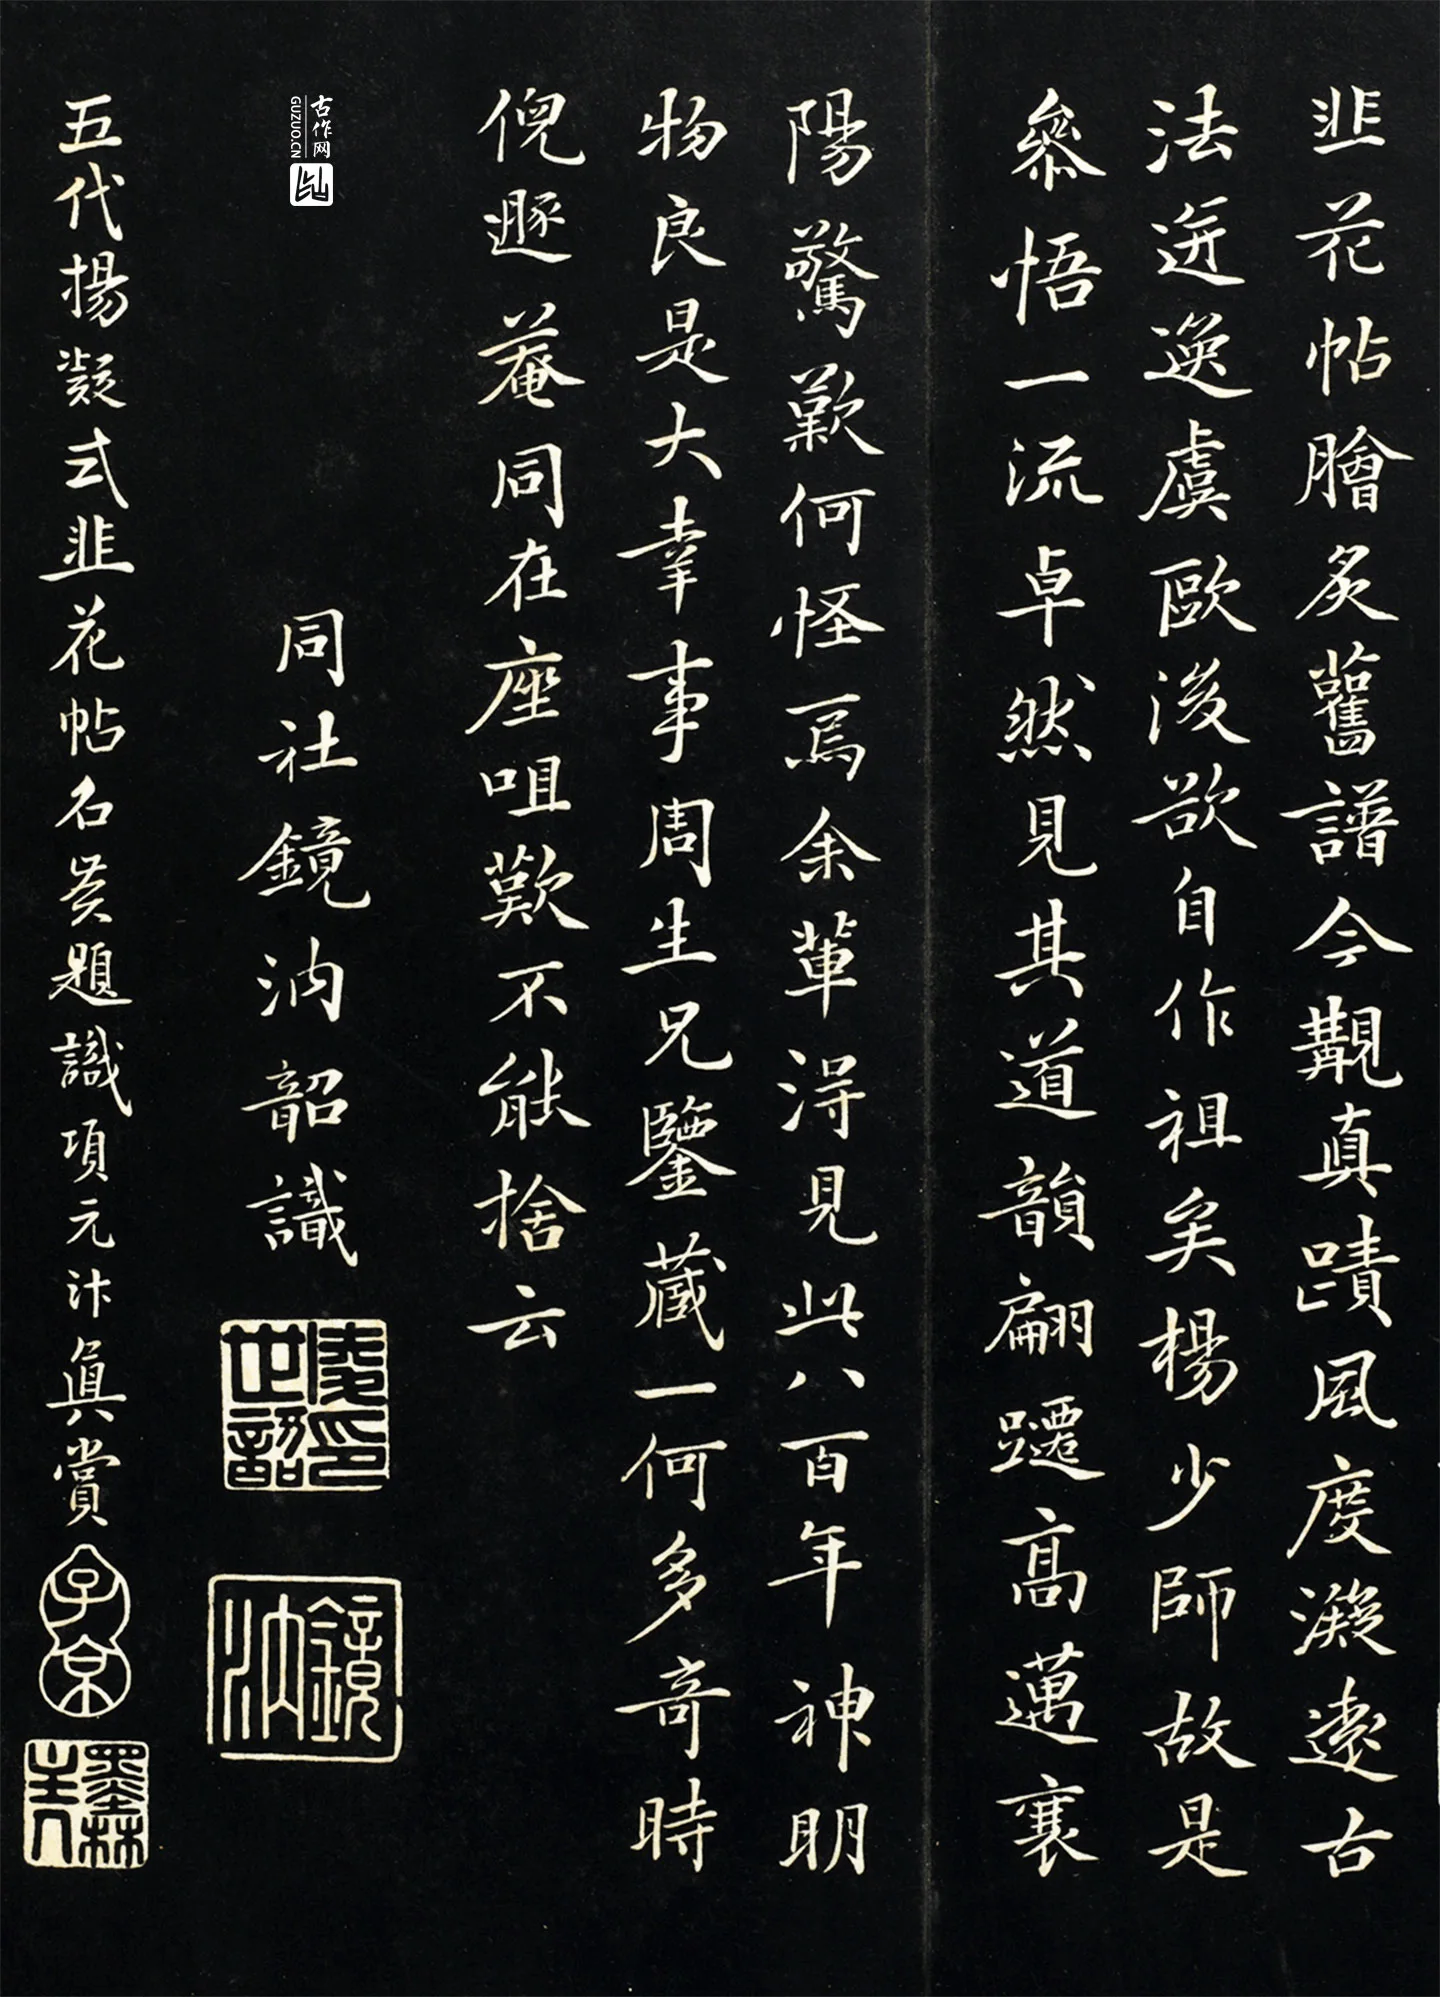 韭花帖膾炙舊譜今覩真蹟風度凝遠古
法迸逸虞歐後欲自作祖矣楊少師故是
叅悟一流卓然見其道韻翩躚高邁襄
陽驚歎何怪焉余輩得見此八百年神明
物良是大幸事周生兄鑒藏一何多奇時
倪遯菴同在座咀歎不能捨云
同社鏡汭韶識
鏡汭
古作网
GUZUO.CN
五代楊凝式韭花帖名賢題識項元汴真賞
子京